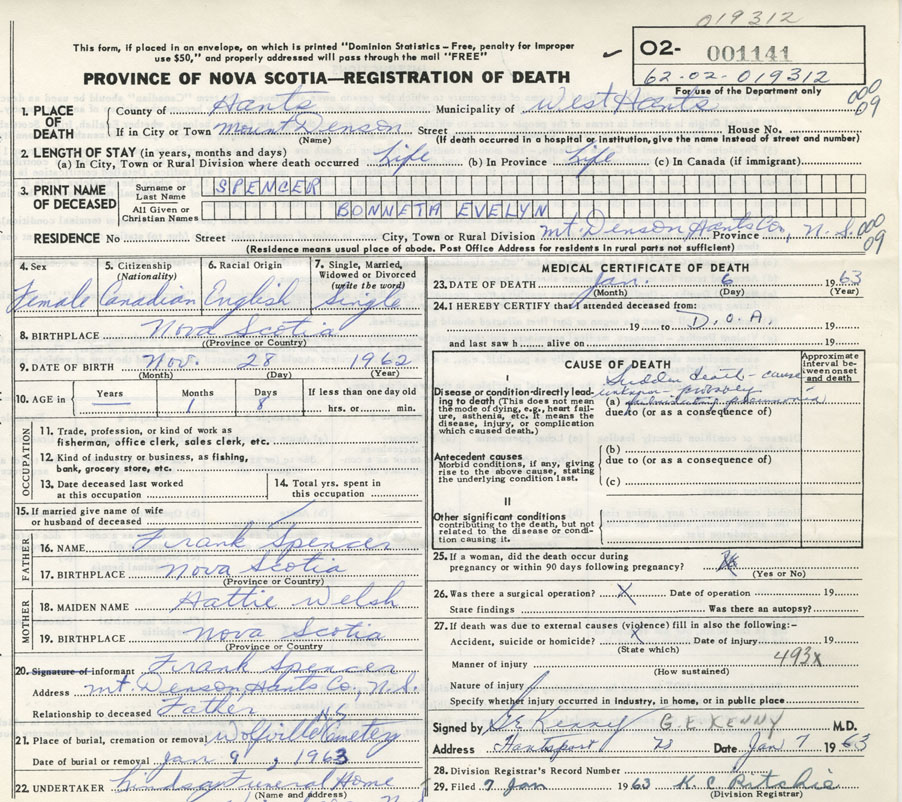 019312
This form, if placed in an envelope, on which is printed "Dominion Statistics – Free, penalty for improper
use $50," and properly addressed will pass through the mail "FREE"
02- 001141
62-02-019312
PROVINCE OF NOVA SCOTIA—REGISTRATION OF DEATH
For use of the Department only
000
09
1. PLACE OF DEATH
County of Hants Municipality of West Hants
If in City or Town Mount Denson Street House No.
(Name) (If death occurred in a hospital or institution, give the name instead of street and number)
2. LENGTH OF STAY (in years, months and days)
(a) In City, Town or Rural Division where death occurred Life (b) In Province Life (c) In Canada (if immigrant)
3. PRINT NAME OF DECEASED
Surname or Last Name SPENCER
All Given or Christian Names BONNETA EVELYN
RESIDENCE No Street City, Town or Rural Division Mt. Denson Hants Co., Province N.S.
000
09
(Residence means usual place of abode. Post Office Address for residents in rural parts not sufficient)
4. Sex
Female
5. Citizenship
(Nationality)
Canadian
6. Racial Origin
English
7. Single, Married,
Widowed or Divorced
(write the word)
Single
8. BIRTHPLACE Nova Scotia
(Province or Country)
9. DATE OF BIRTH Nov. 28 1962
(Month) (Day) (Year)
10. AGE in
Years Months Days If less than one day old
— 1 8 hrs. or min.
OCCUPATION
11. Trade, profession, or kind of work as
fisherman, office clerk, sales clerk, etc.
12. Kind of industry or business, as fishing,
bank, grocery store, etc.
13. Date deceased last worked
at this occupation
14. Total yrs. spent in
this occupation
15. If married give name of wife
or husband of deceased
FATHER
16. NAME Frank Spencer
17. BIRTHPLACE Nova Scotia
(Province or Country)
MOTHER
18. MAIDEN NAME Hattie Welsh
19. BIRTHPLACE Nova Scotia
(Province or Country)
20. Signature of informant Frank Spencer
Address Mt. Denson Hants Co., N.S.
Relationship to deceased Father
N.S.
21. Place of burial, cremation or removal Wolfville Cemetery
Date of burial or removal Jan 9, 1963
22. UNDERTAKER Lindsay Funeral Home
(Name and address)
MEDICAL CERTIFICATE OF DEATH
23. DATE OF DEATH Jan. 6 1963
(Month) (Day) (Year)
24. I HEREBY CERTIFY that I attended deceased from:
19 to D.O.A. 19
and last saw h alive on 19
CAUSE OF DEATH
Approximate
interval between onset
and death
I
Disease or condition directly leading to death (This does not mean
the mode of dying, e.g., heart failure, asthenia, etc. It means the
disease, injury, or complication
which caused death.)
Sudden death - cause
unknown
(a) pneumonia
due to (or as a consequence of)
Antecedent causes
Morbid conditions, if any, giving
rise to the above cause, stating
the underlying condition last.
(b)
due to (or as a consequence of)
(c)
II
Other significant conditions
contributing to the death, but not
related to the disease or condition causing it.
25. If a woman, did the death occur during
pregnancy or within 90 days following pregnancy?
(Yes or No)
26. Was there a surgical operation? X Date of operation 19
State findings Was there an autopsy?
27. If death was due to external causes (violence) fill in also the following:–
Accident, suicide or homicide? X Date of injury 19
(State which)
493X
Manner of injury
(How sustained)
Nature of injury
Specify whether injury occurred in industry, in home, or in public place
Signed by G.E. Kenny G. E. KENNY M.D.
Address Hantsport NS Date Jan 7 1963
28. Division Registrar's Record Number
29. Filed 7 Jan 1963 H. C. Ritchie
(Division Registrar)